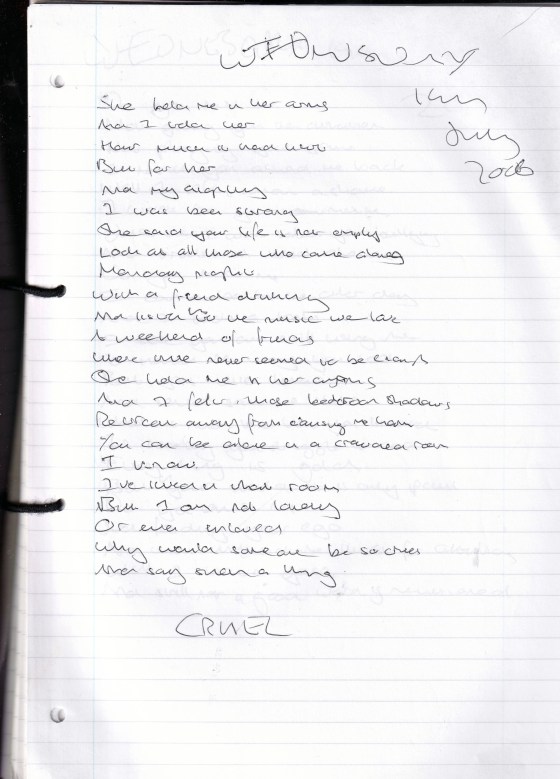 WEDNESDAY
July
2006
She held me in her arms
And I told her
How much it had hurt
But for her
And my
I was been strong
She said your life is not empty
Look at all those who come along
Monday night
With a friend drinking
And listening to the music we love
A weekend of friends
Where time never seemed to be enough
She held me in her arms
And I felt those bedroom shadows
Retreat away from causing me harm
You can be alone in a crowded room
I know
I've lived in that room
But I am not lonely
Or even unloved
Why would someone be so cruel
And say such a thing
CRUEL